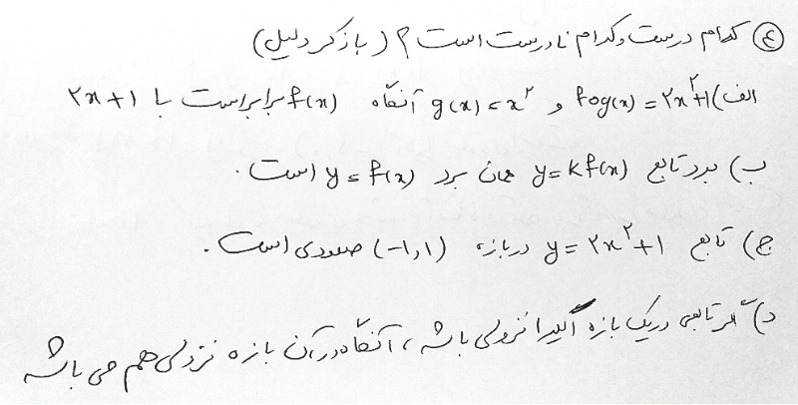 ④ کدام درست و کدام نادرست است ؟ (با ذکر دلیل)
الف) fog(x) = ۲x²+۱ و g(x) = x² آنگاه f(x) برابر است با ۲x+۱
ب) برد تابع y = kf(x) همان برد y = f(x) است.
ج) تابع y = ۲x²+۱ در بازه (-۱,۱) صعودی است.
د) اگر تابعی در یک بازه اکیدا نزولی باشد، آنگاه در آن بازه نزولی هم می باشد